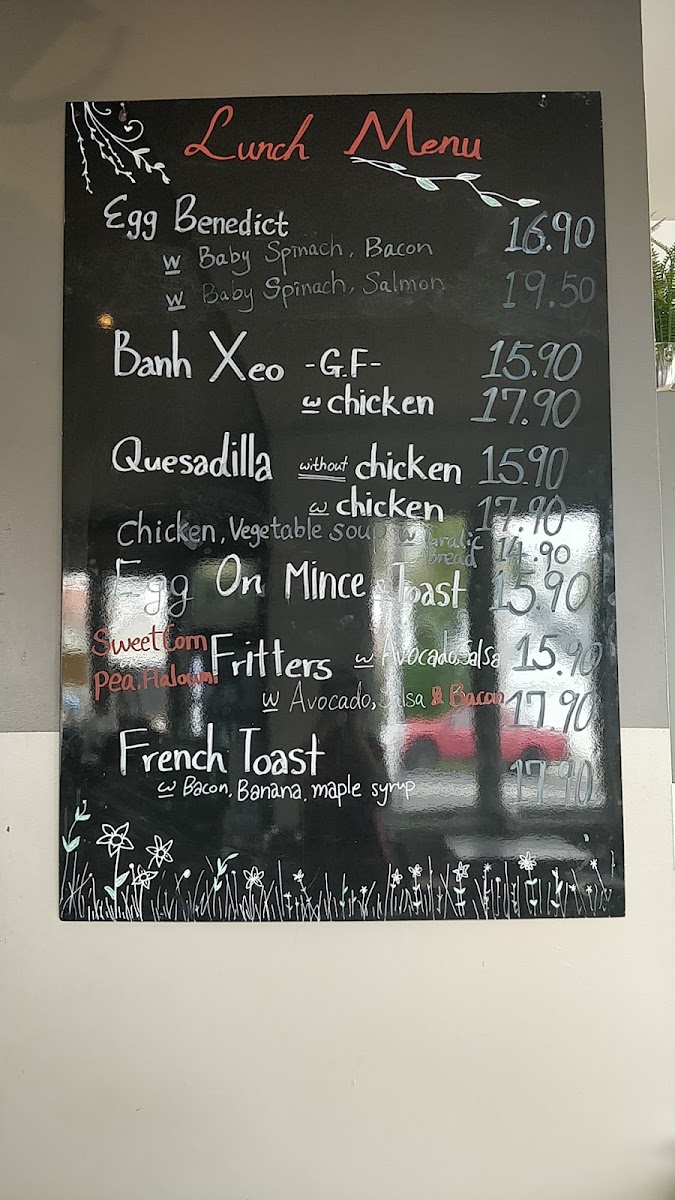 Lunch Menu
Egg Benedict
w Baby Spinach, Bacon 16.90
w Baby Spinach, Salmon 19.50
Banh Xeo -G.F- 15.90
w chicken 17.90
Quesadilla without chicken 15.90
w chicken 17.90
Chicken, Vegetable soup w Garalic Bread 14.90
Egg On Mince & Toast 15.90
Sweet Corn Pea, Haloumi Fritters w Avocado, Salsa 15.90
w Avocado, Salsa & Bacon 17.90
French Toast
w Bacon, Banana, maple syrup 17.90